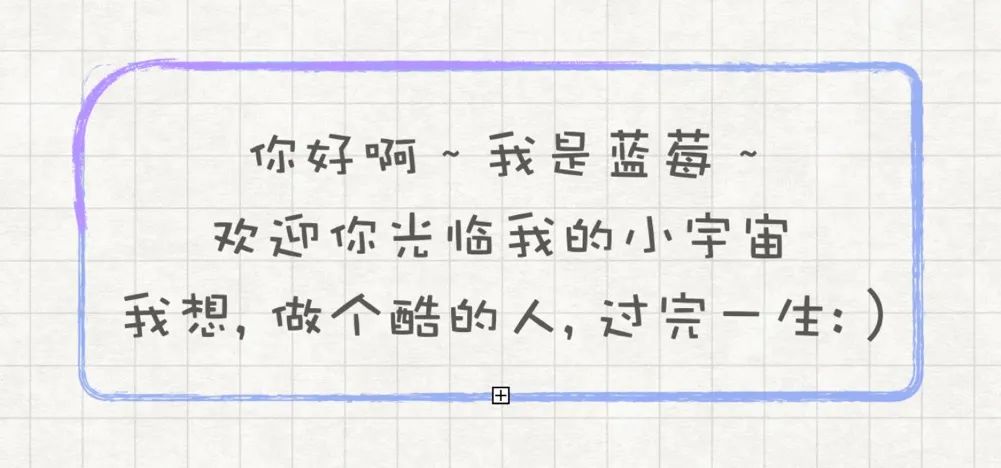 你好啊~我是蓝莓~
欢迎你光临我的小宇宙
我想,做个酷的人,过完一生:)